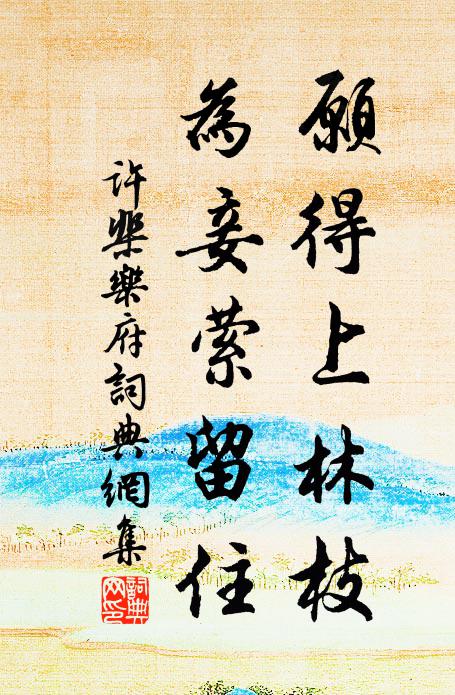 願得上林枝
為妾縈留住
許棐樂府詞典網集
詞典